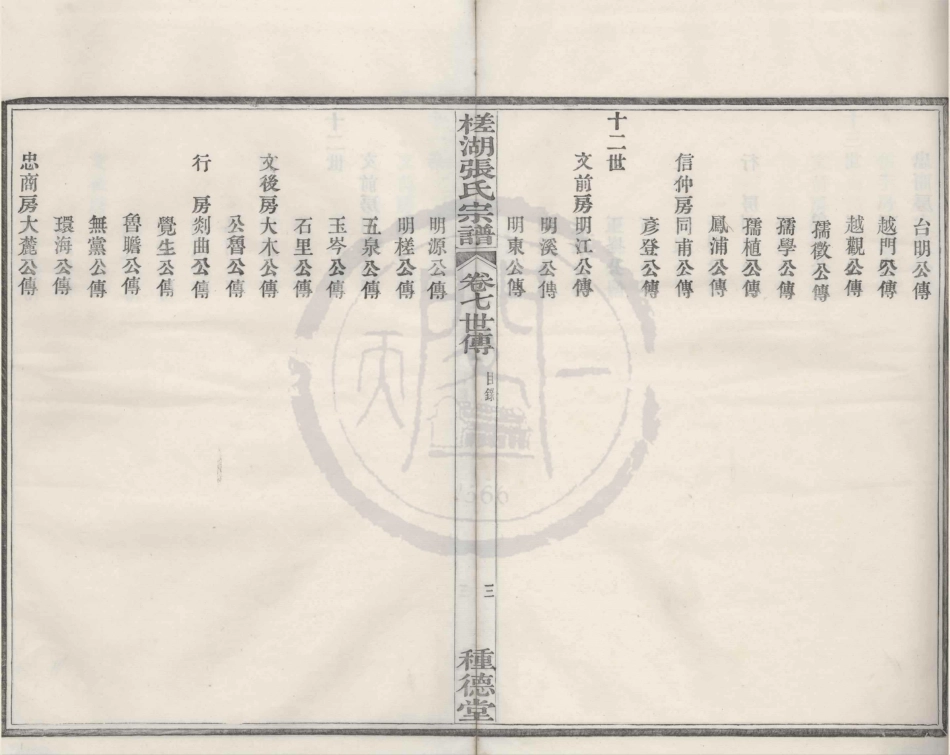 台明公傳
越門公傳
越觀公傳
孺徵公傳
孺學公傳
孺植公傳
鳳浦公傳
信仲房同甫公傳
彥登公傳
十二世
文前房明江公傳
明溪公傳
明東公傳
槎湖張氏宗譜 卷七世傳 目錄 三 種德堂
明源公傳
明槎公傳
五泉公傳
玉岑公傳
石里公傳
文後房大木公傳
公魯公傳
行 房剡曲公傳
覺生公傳
魯瞻公傳
無黨公傳
環海公傳
忠商房大麓公傳
天一閣
1566